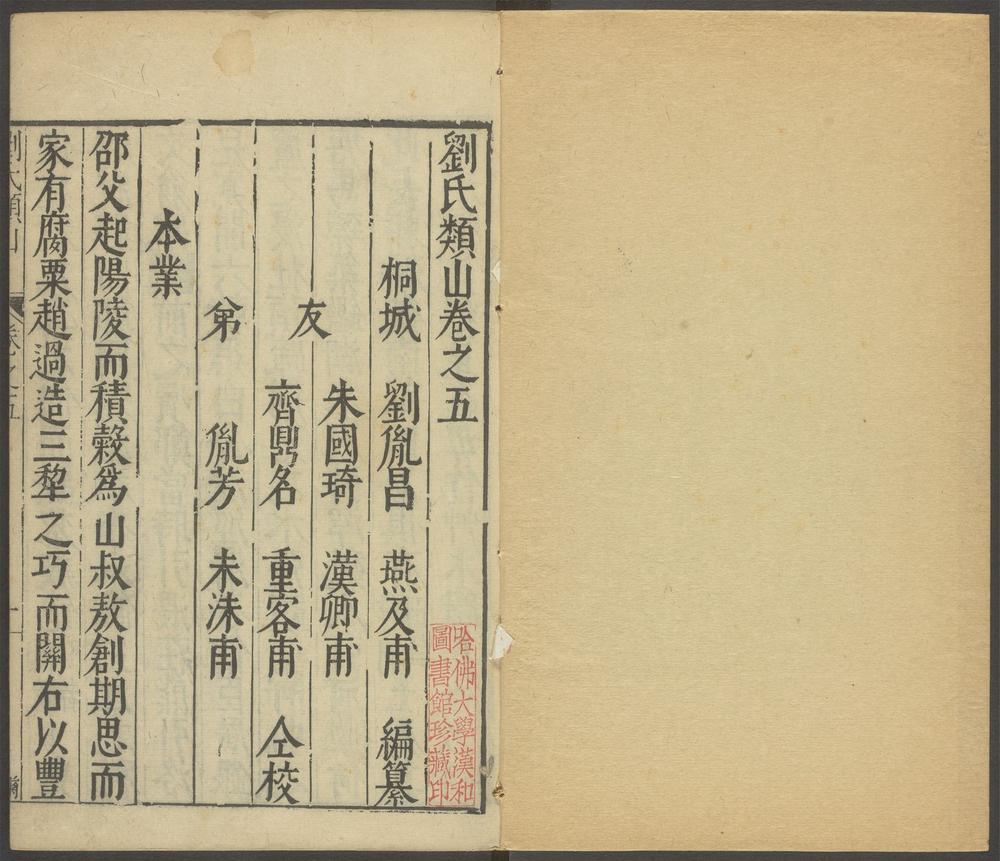 劉氏類山卷之五
桐城 劉胤昌 燕及甫 編纂
友 朱國琦 漢卿甫
齊鼎名 重客甫 仝校
弟 胤芳 未沬甫
本業
邵父起陽陵而積穀爲山叔敖創期思而
家有腐粟趙過造三犂之巧而關右以豐
劉氏類山 卷之五 一
哈佛大學漢和
圖書館珍藏印